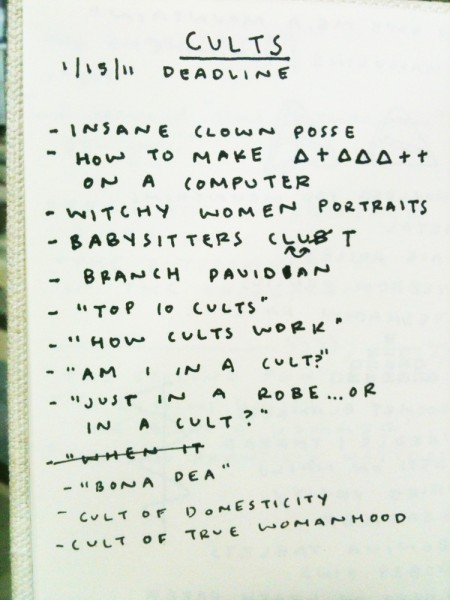 CULTS
1/15/11 DEADLINE
- INSANE CLOWN POSSE
- HOW TO MAKE Δ+ΔΔΔ++
ON A COMPUTER
- WITCHY WOMEN PORTRAITS
- BABYSITTERS CLUB T
- BRANCH DAVIDIAN
- "TOP 10 CULTS"
- "HOW CULTS WORK"
- "AM I IN A CULT?"
- "JUST IN A ROBE...OR
IN A CULT?"
- "WHEN IT
- "BONA DEA"
- CULT OF DONESTICITY
- CULT OF TRUE WOMANHOOD